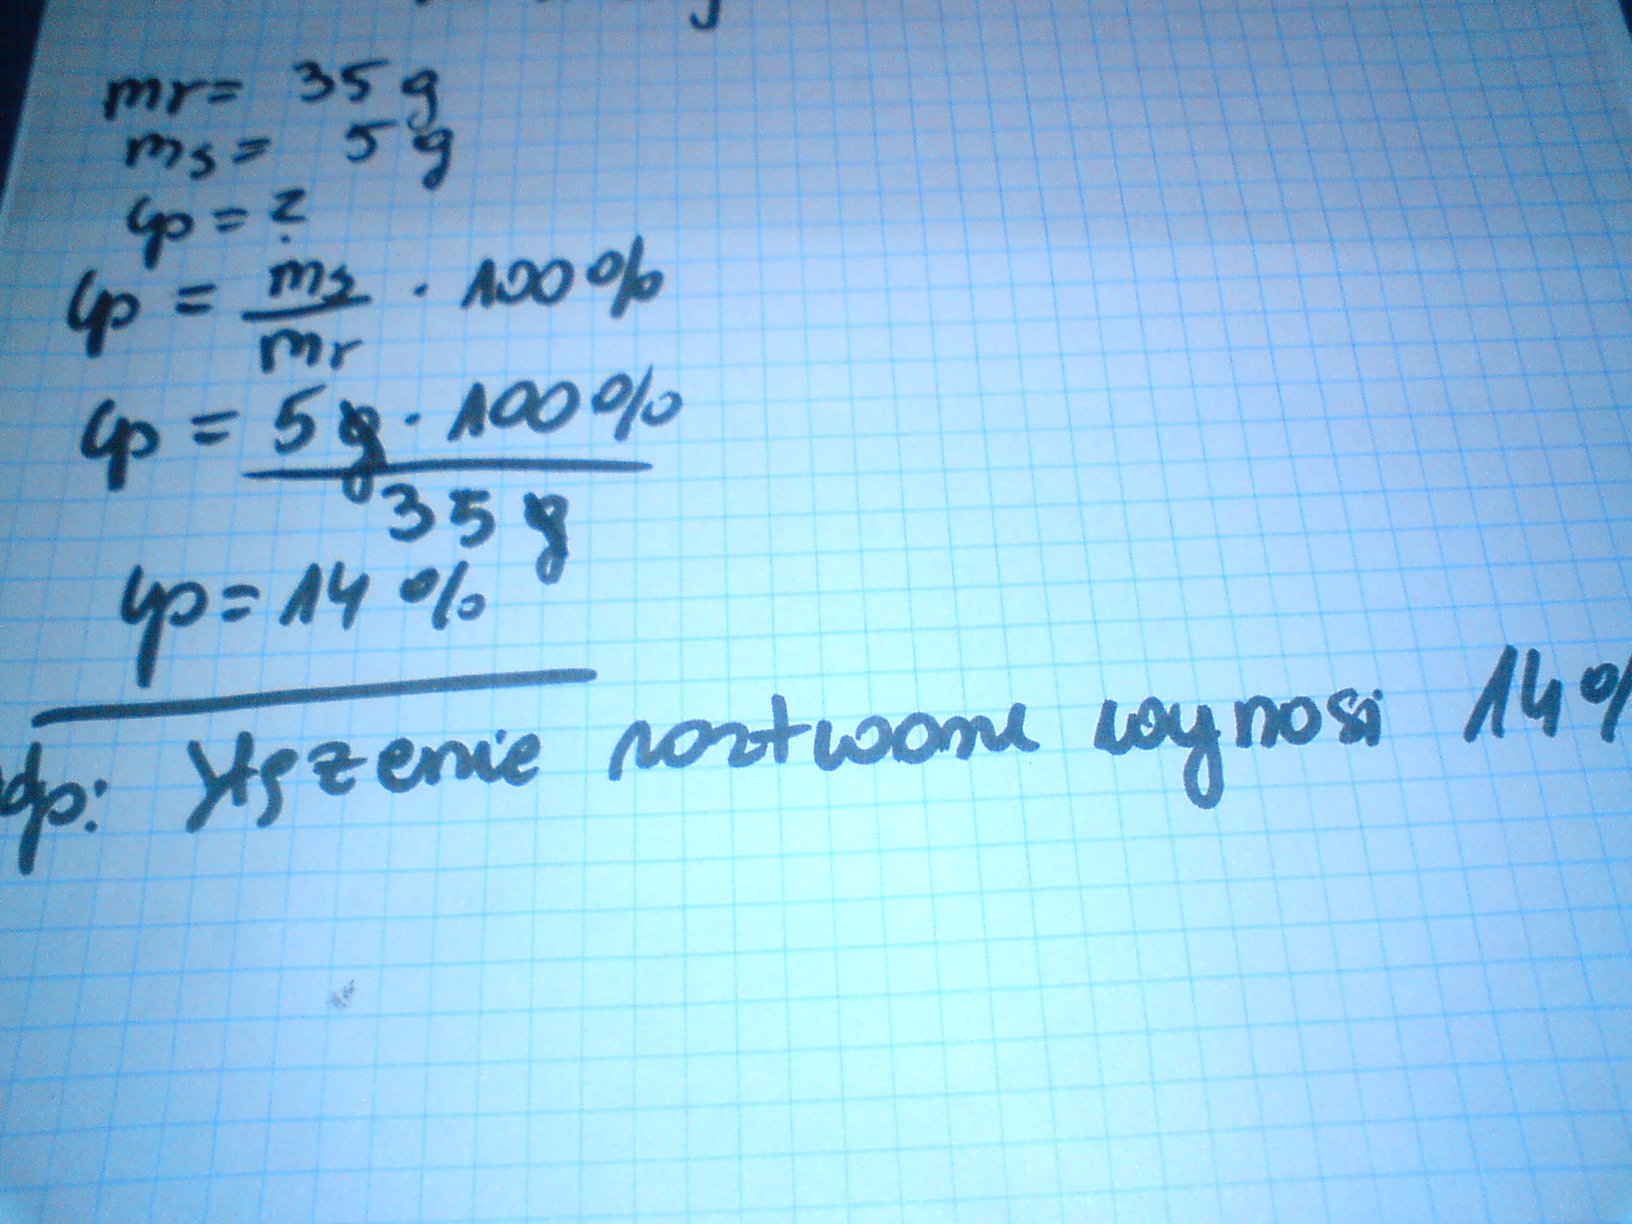 mr = 35 g
ms = 5 g
Cp = ?
Cp = ms / mr · 100%
Cp = 5 g · 100% / 35 g
Cp = 14 %
odp: Stężenie roztworu wynosi 14%